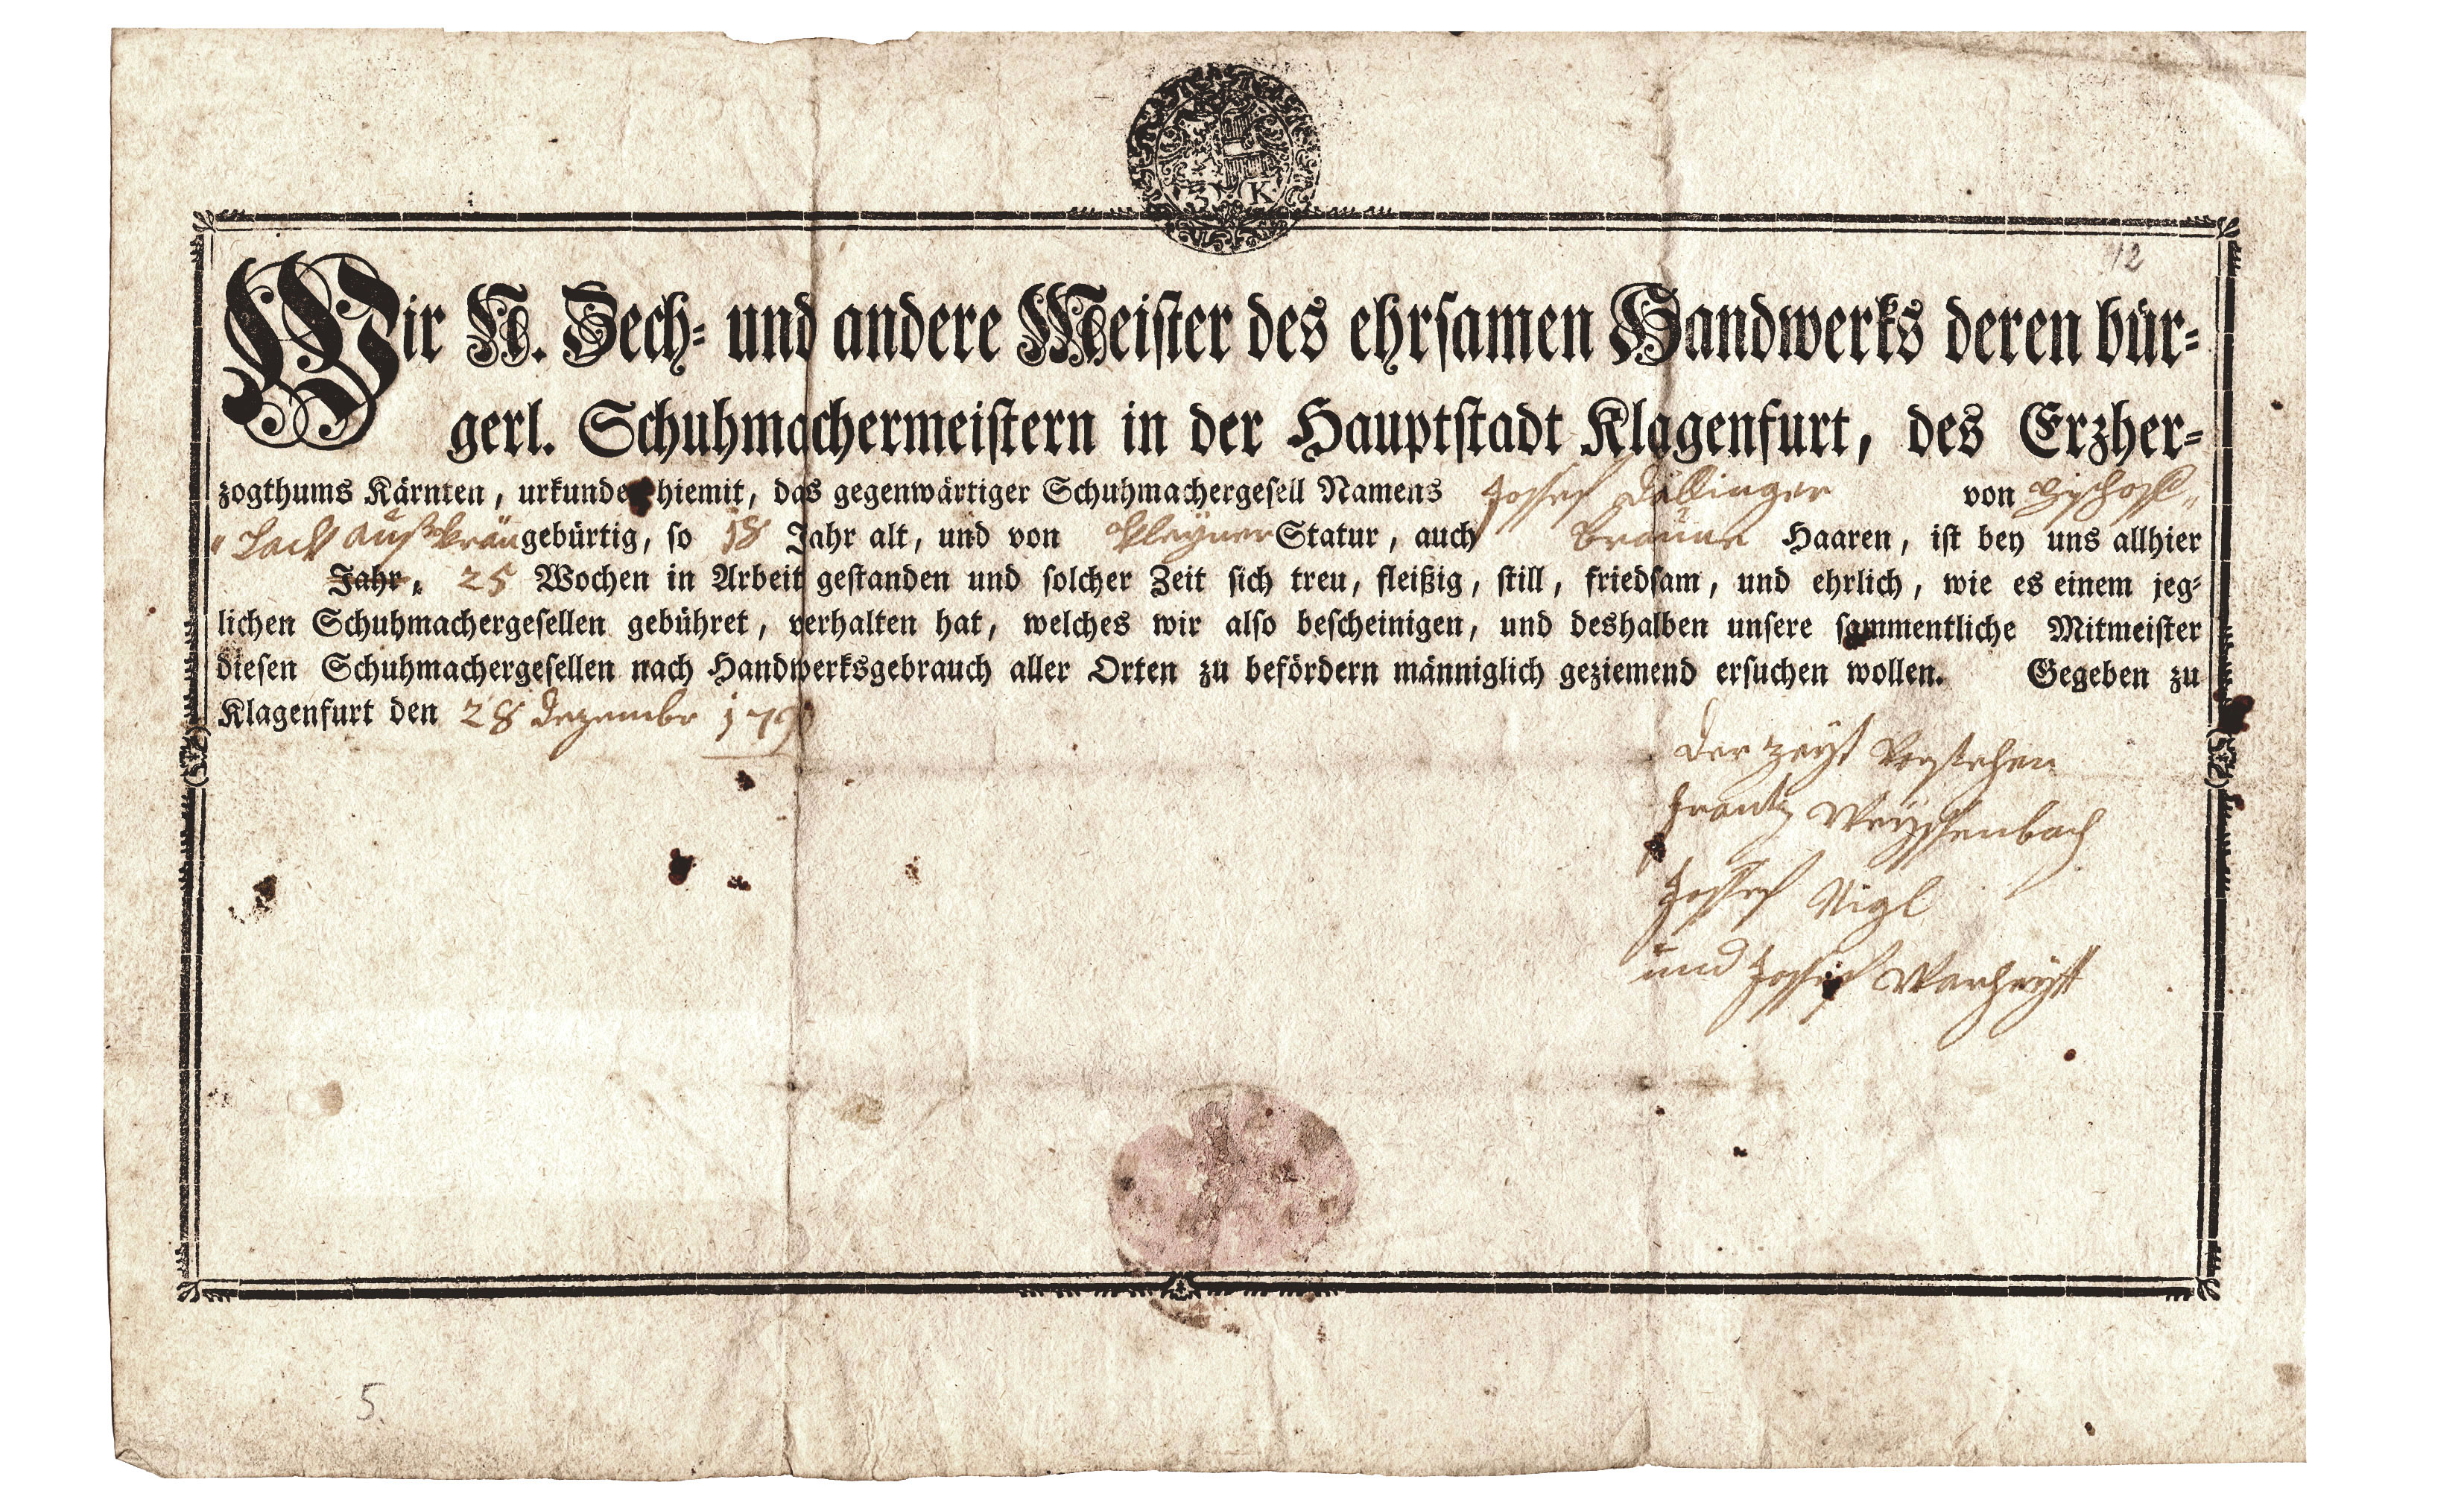 3 K
12
Wir N. Zech- und andere Meister des ehrsamen Handwerks deren bür-
gerl. Schuhmachermeistern in der Hauptstadt Klagenfurt, des Erzher-
zogthums Kärnten, urkunden hiemit, das gegenwärtiger Schuhmachergesell Namens Joseph Dallinger von Byschofl-
Lack auß krän gebürtig, so 18 Jahr alt, und von kleyner Statur, auch braune Haaren, ist bey uns allhier
Jahr, 25 Wochen in Arbeit gestanden und solcher Zeit sich treu, fleißig, still, friedsam, und ehrlich, wie es einem jeg-
lichen Schuhmachergesellen gebühret, verhalten hat, welches wir also bescheinigen, und deshalben unsere sammentliche Mitmeister
diesen Schuhmachergesellen nach Handwerksgebrauch aller Orten zu befördern männiglich geziemend ersuchen wollen. Gegeben zu
Klagenfurt den 28 Dezembr 179
Der zeyt Vorstehen
Frantz Weyssenbach
Joseph Nigl
und Joseph Warheyt
5